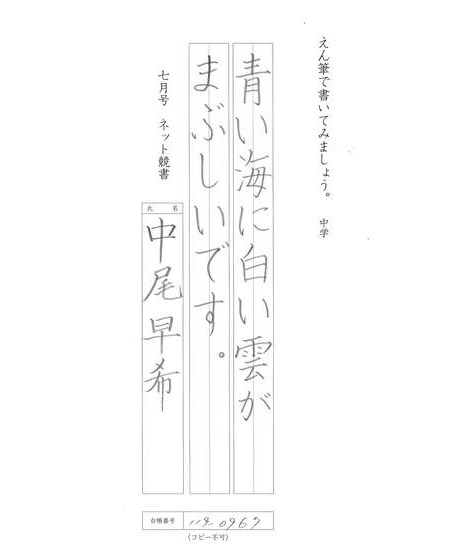 えん筆で書いてみましょう。 中学
青い海に白い雲が
まぶしいです。
七月号 ネット競書
氏名
中尾早希
台帳番号
〈コピー不可〉